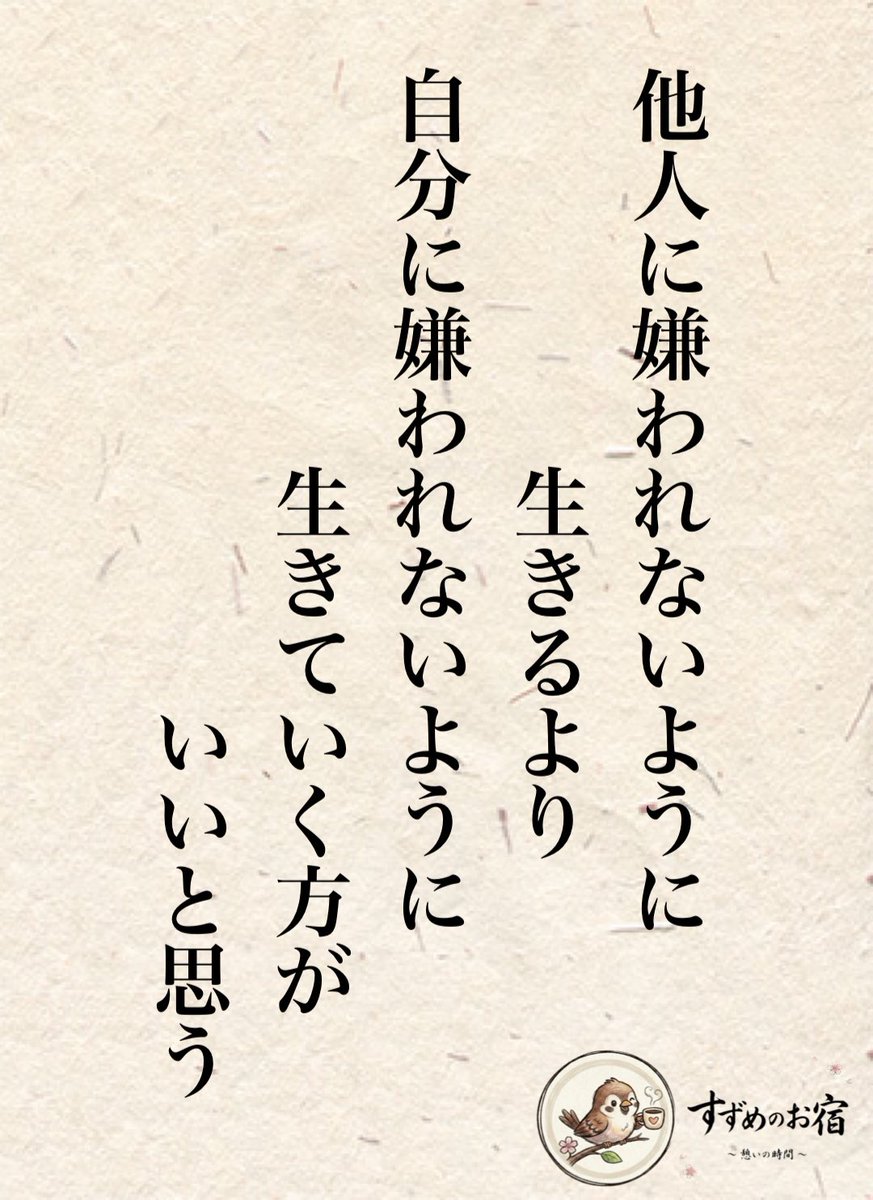 他人に嫌われないように
生きるより
自分に嫌われないように
生きていく方が
いいと思う
すずめのお宿
～憩いの時間～